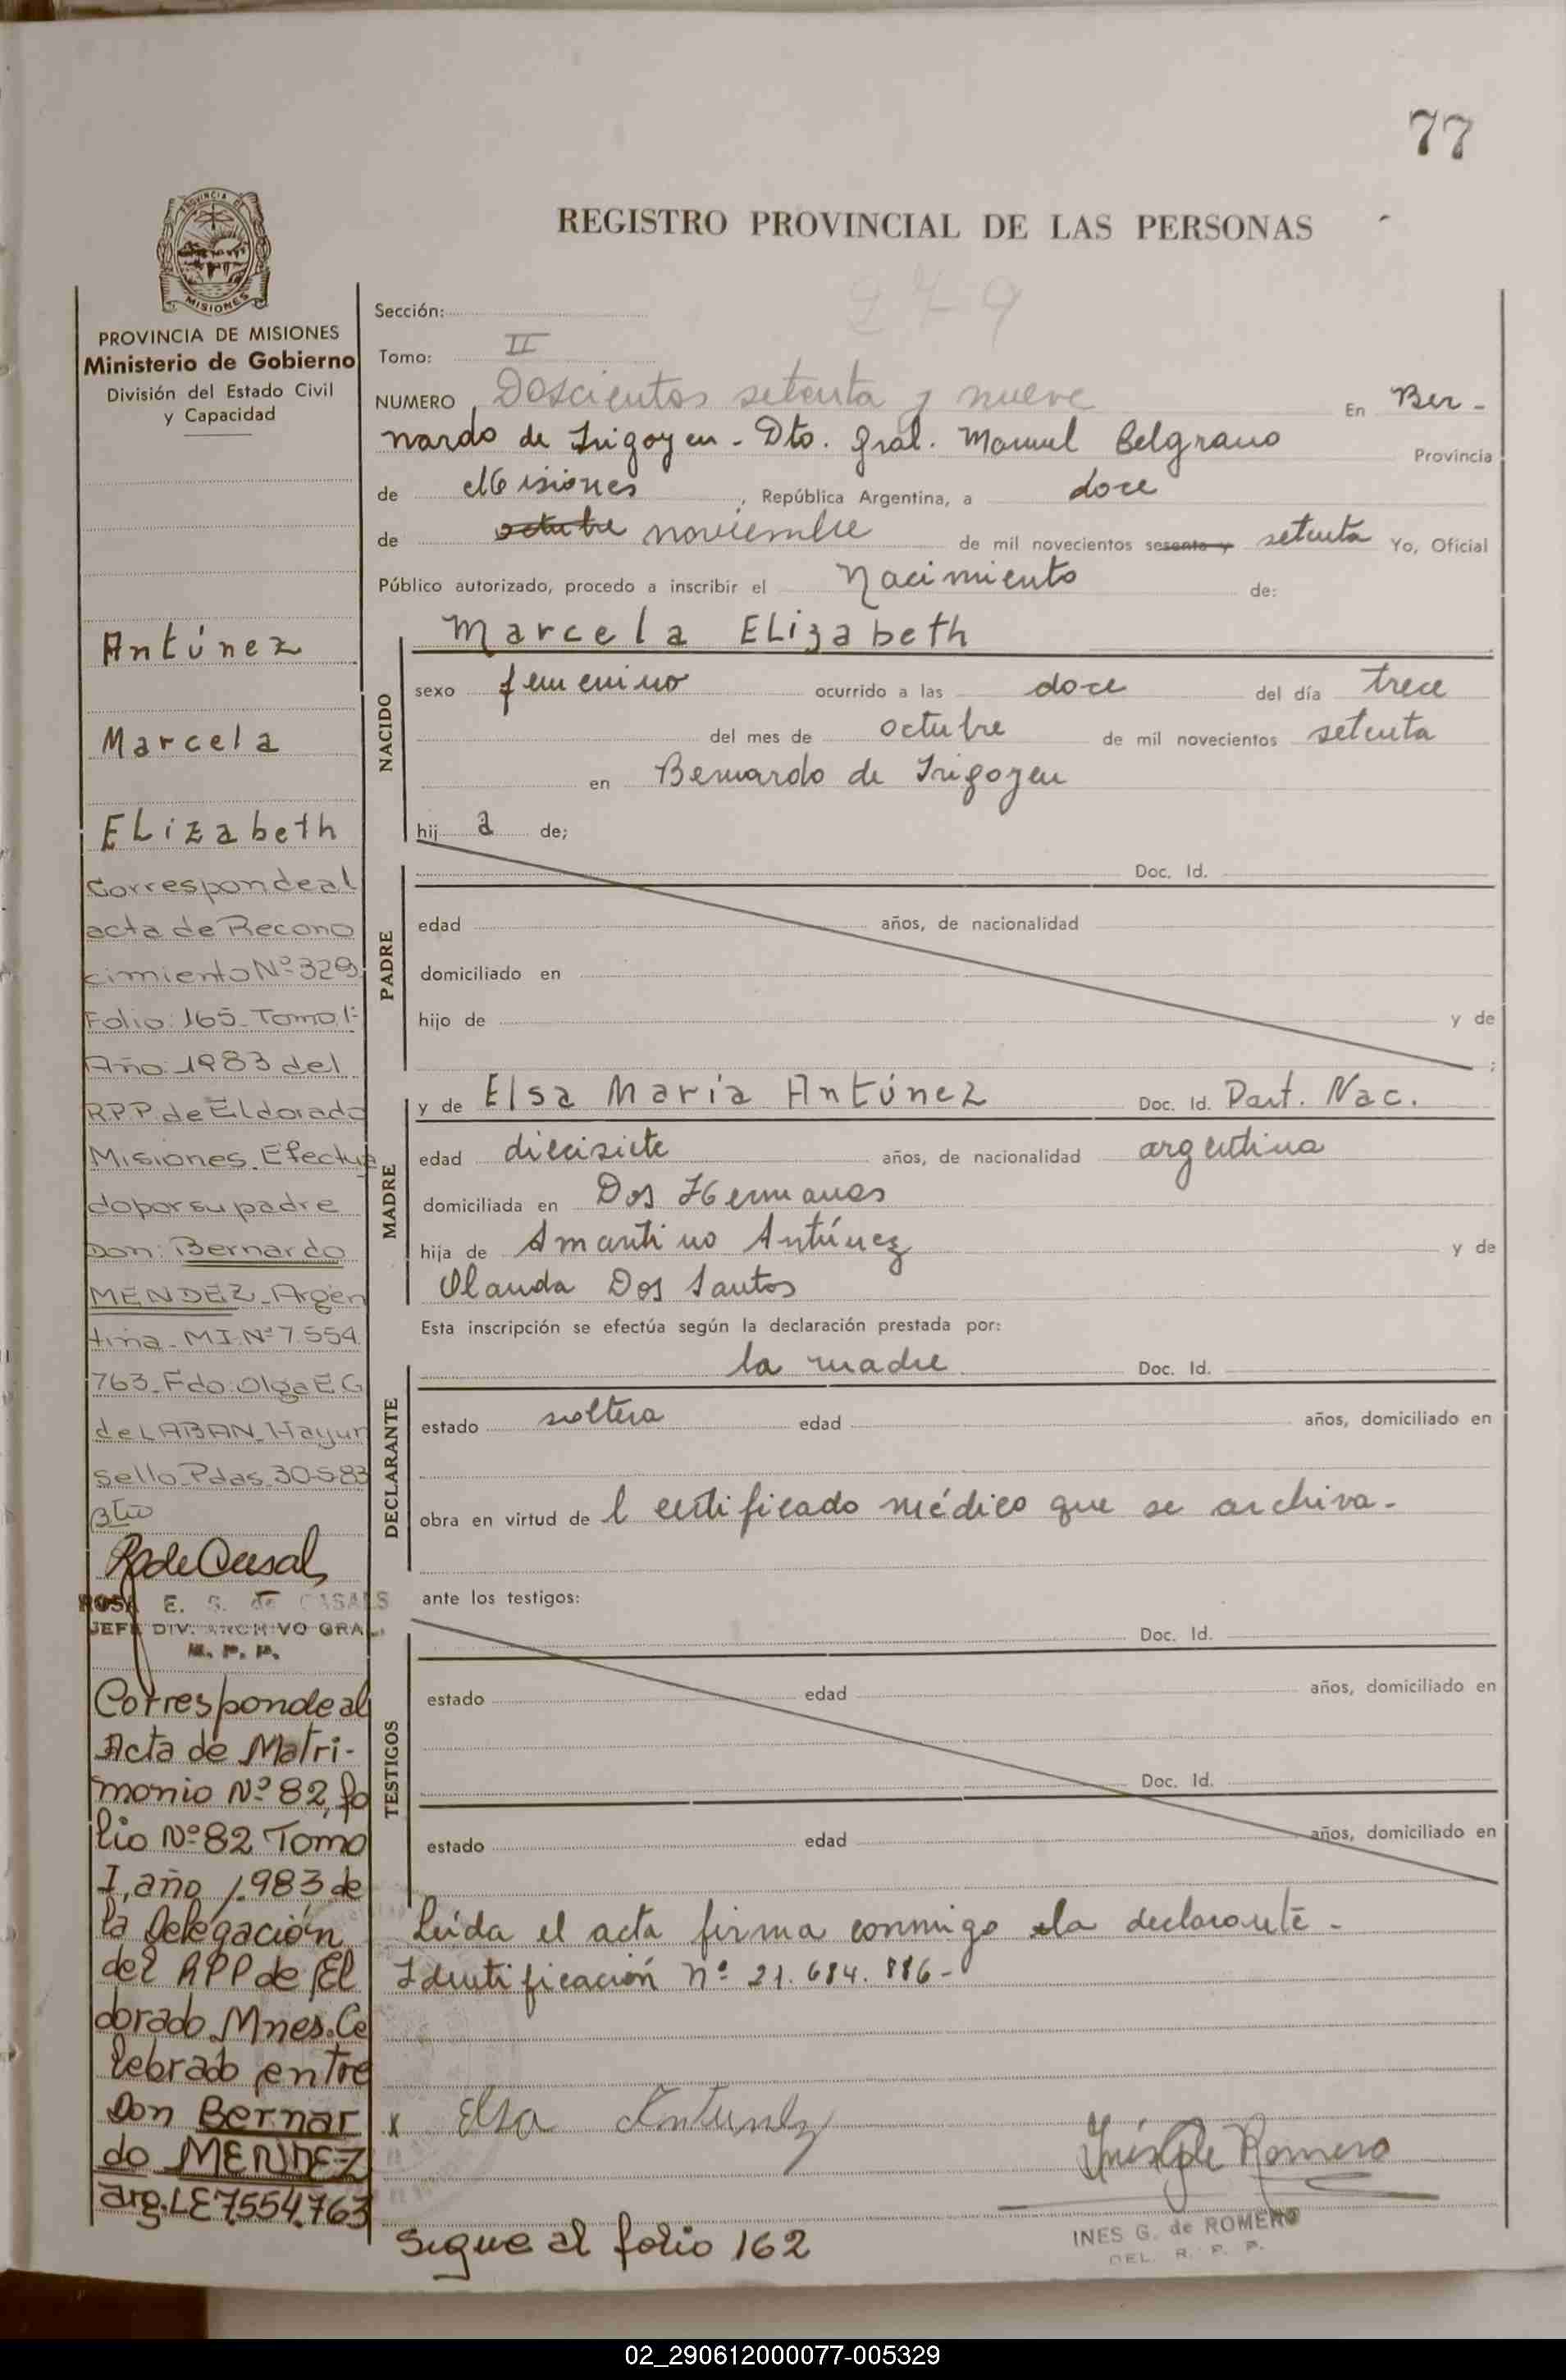 77
REGISTRO PROVINCIAL DE LAS PERSONAS
PROVINCIA DE MISIONES
Ministerio de Gobierno
División del Estado Civil
y Capacidad
Antúnez
Marcela
ELizabeth
Corresponde al
acta de Recono
cimiento Nº 329
Folio: 165. Tomo, I:
Año: 1983 del
R.P.P. de Eldorado
Misiones. Efectua
do por su padre
Don: Bernardo
MENDEZ - Argen
tina - M.I. Nº 7.554
763 - Fdo. Olga E. G
de LABAN - Hay un
sello - Pdas. 30-5-83
ROSA E. S. de CASALS
JEFE DIV. ARCHIVO GRAL.
R. P. P.
Corresponde al
Acta de Matri-
monio Nº 82, fo
lio Nº 82 Tomo
I, año 1.983 de
la Delegación
del RPP de El
dorado Mnes. Ce
lebrado entre
Don Bernar
do MENDEZ
arg. LE 7.554.763
279
Sección:
Tomo: II
NUMERO, Doscientos setenta y nueve En Ber-
nardo de Irigoyen - Dto. Gral. Manuel Belgrano Provincia
de Misiones, República Argentina, a doce
de octubre noviembre de mil novecientos sesenta y setenta Yo, Oficial
Público autorizado, procedo a inscribir el Nacimiento de:
NACIDO
Marcela ELizabeth
sexo femenino ocurrido a las doce del día trece
del mes de octubre de mil novecientos setenta
en Bernardo de Irigoyen
hij a de;
PADRE
Doc. Id.
edad años, de nacionalidad
domiciliado en
hijo de y de
;
MADRE
y de Elsa María Antúnez Doc. Id. Part. Nac.
edad diecisiete años, de nacionalidad argentina
domiciliada en Dos Hermanas
hija de Amantino Antúnez y de
Olanda Dos Santos
Esta inscripción se efectúa según la declaración prestada por:
DECLARANTE
la madre Doc. Id.
estado soltera edad años, domiciliado en
obra en virtud de l certificado médico que se archiva.-
ante los testigos:
TESTIGOS
Doc. Id.
estado edad años, domiciliado en
Doc. Id.
estado edad años, domiciliado en
Leída el acta firma conmigo la declarante -
Identificación nº 21.684.886-
x Elsa Antunez
Inés G de Romero
INES G. de ROMERO
DEL. R. P. P.
Sigue al folio 162
02_290612000077-005329